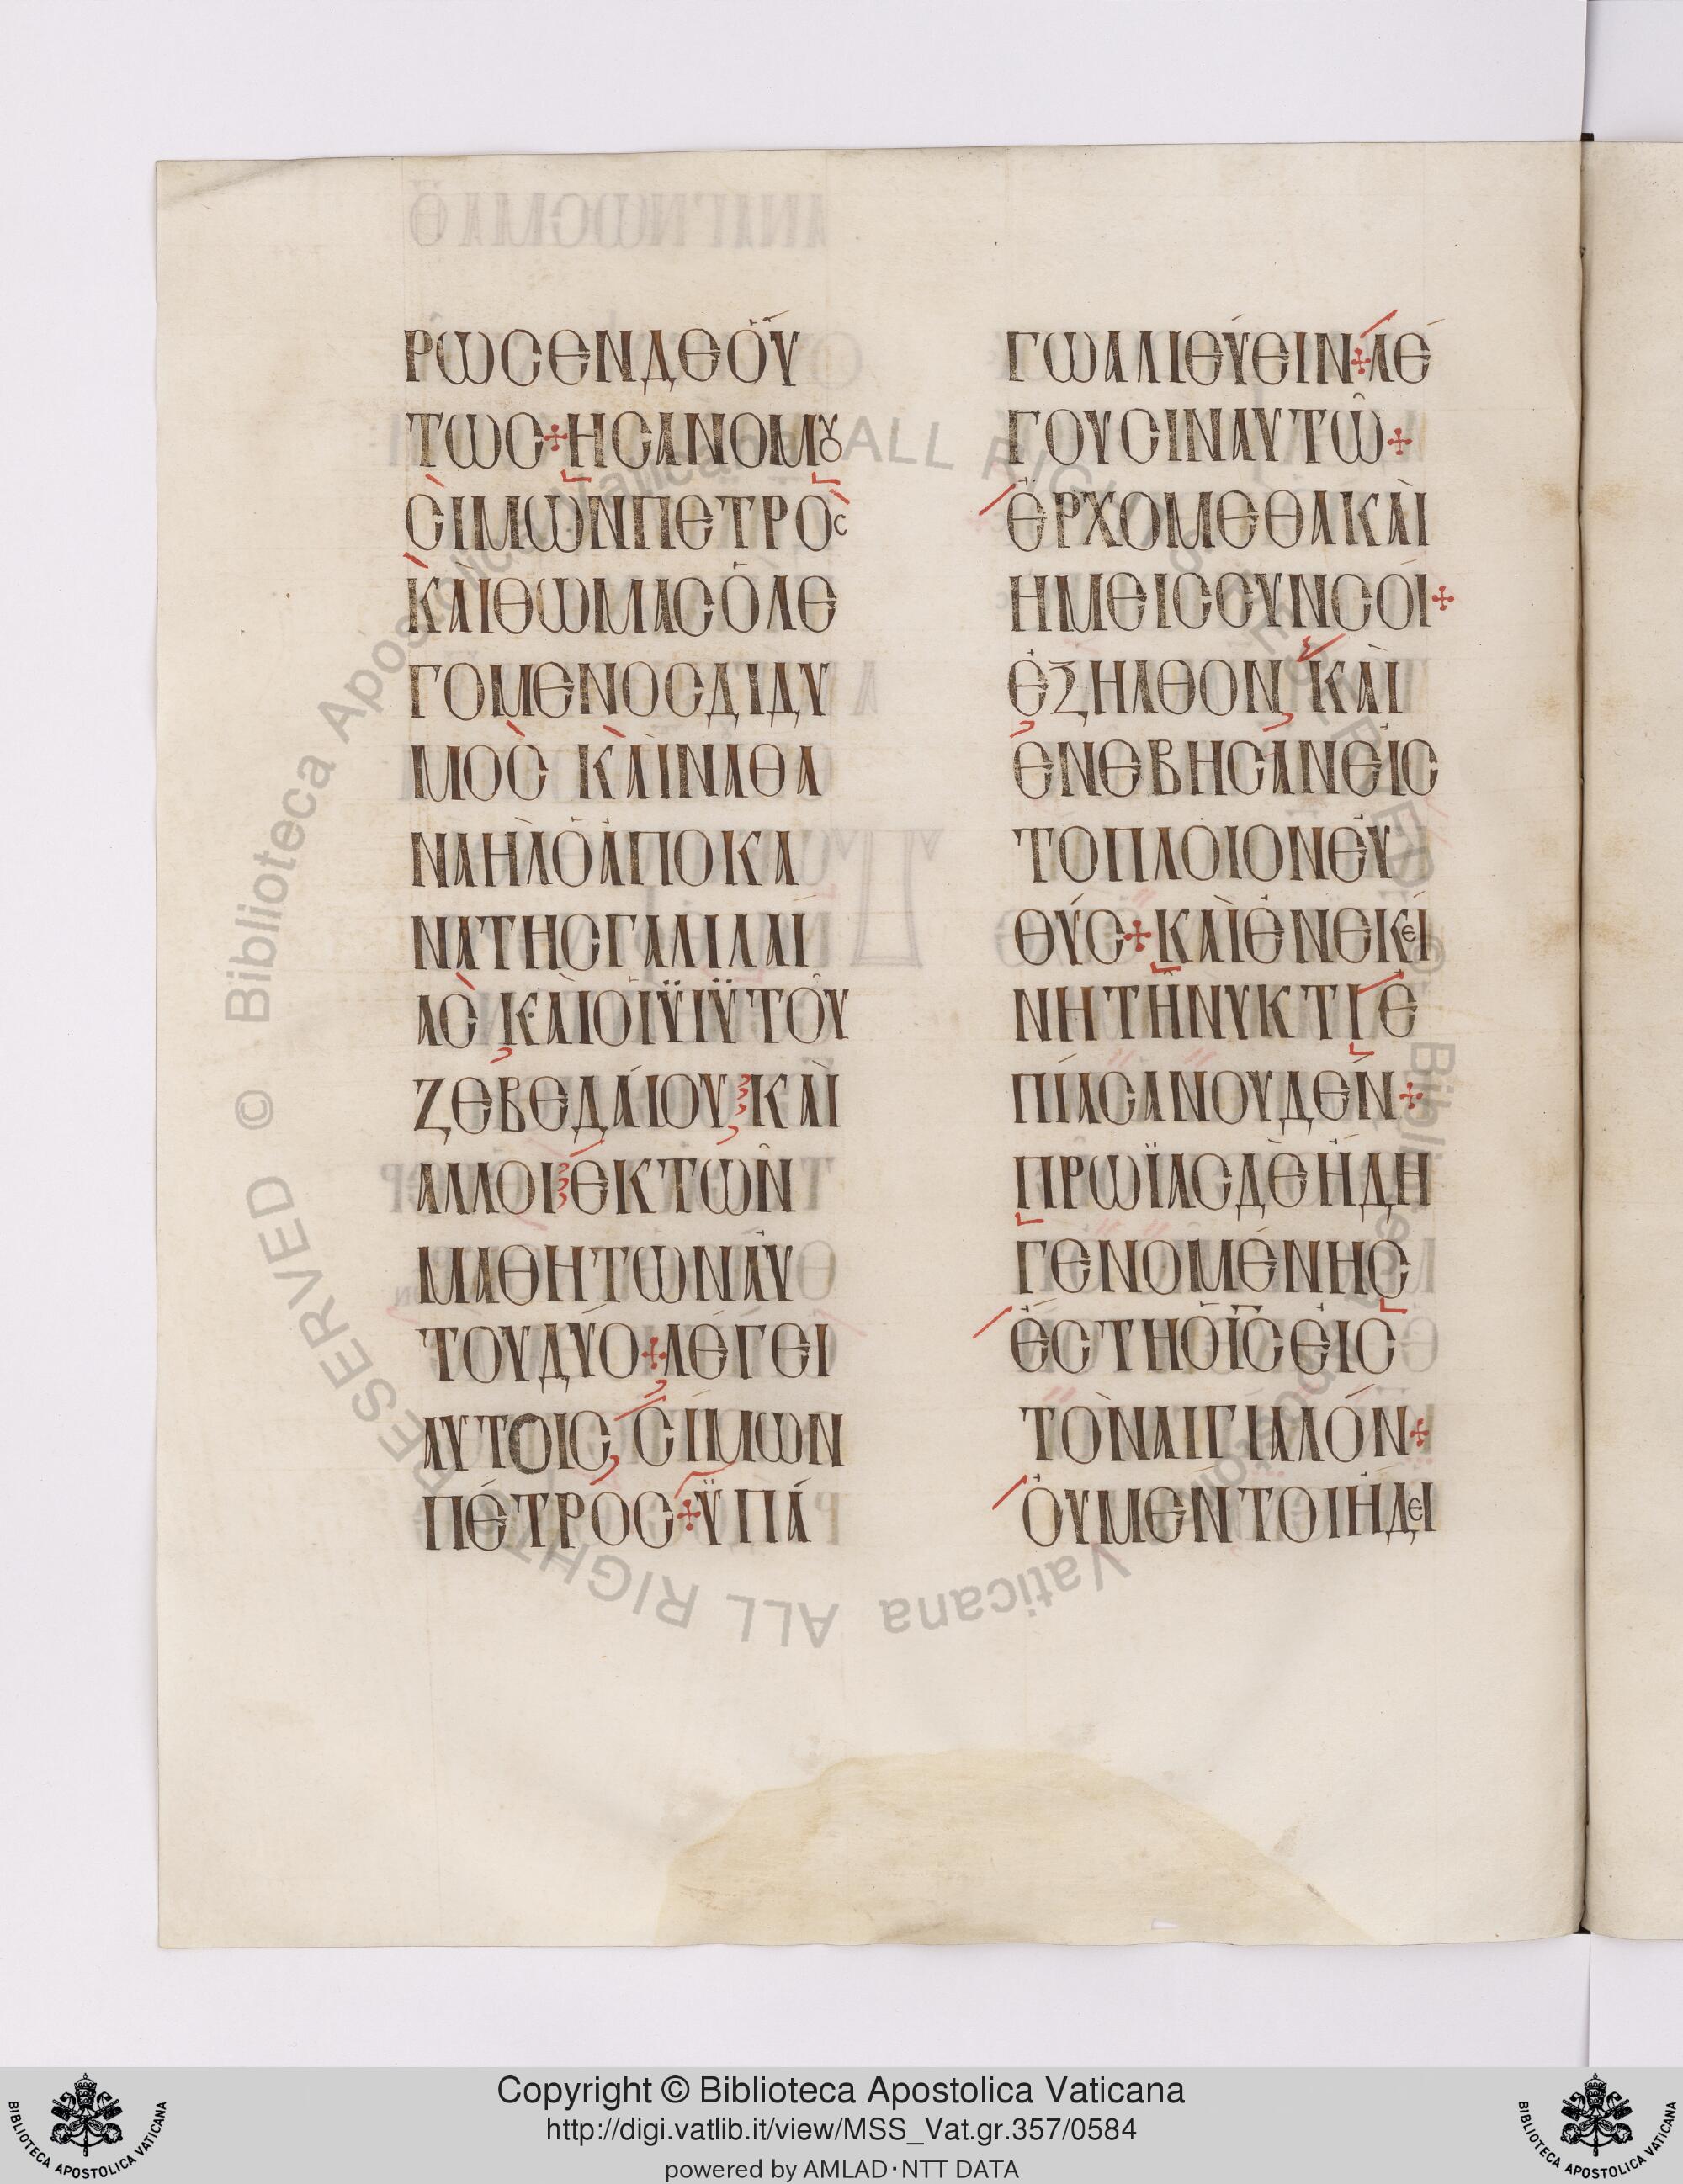 ΡΩCΕΝΔΕΟΫ́
ΤΩC⁘ΗCΑΝΟΜȢ
CΙΜΩΝΠΕΤΡΟC
ΚΑΙΘΩΜΑCΟΛΕ
ΓΟΜΕΝΟCΔΙΔΥ
ΜΟC ΚΑΙΝΑΘΑ
ΝΑΗΛΟΑΠΟΚΑ
ΝΑΤΗCΓΑΛΙΛΑΙ
ΑC ΚΑΙΟΙΫΙΫΤΟΥ
ΖΕΒΕΔΑΙΟΥ ΚΑΙ
ΑΛΛΟΙ ΕΚΤΩΝ
ΜΑΘΗΤΩΝΑΥ
ΤΟΥΔΥΟ⁘ΛΕΓΕΙ
ΑΥΤΟΙC, CΙΜΩΝ
ΠΕΤΡΟC⁘ΫΠΑ
ΓΩΑΛΙΕΥΕΙΝ⁘ΛΕ
ΓΟΥCΙΝΑΥΤΩ⁘
ΕΡΧΟΜΕΘΑΚΑΙ
ΗΜΕΙCCΥΝCΟΙ⁘
ΕΞΗΛΘΟΝ ΚΑΙ
ΕΝΕΒΗCΑΝΕΙC
ΤΟΠΛΟΙΟΝΕΥ
ΘΥC⁘ΚΑΙΕΝΕΚΕΙ
ΝΗΤΗΝΥΚΤΙ Ε
ΠΙΑCΑΝΟΥΔΕΝ⁘
ΠΡΩΪΑCΔΕΗΔΗ
ΓΕΝΟΜΕΝΗC
ΕCΤΗΟΙ̅C̅ΕΙC
ΤΟΝΑΙΓΙΑΛΟΝ⁘
ΟΥΜΕΝΤΟΙΗΔΕΙ
Copyright © Biblioteca Apostolica Vaticana
http://digi.vatlib.it/view/MSS_Vat.gr.357/0584
powered by AMLAD·NTT DATA
BIBLIOTECA APOSTOLICA VATICANA
BIBLIOTECA APOSTOLICA VATICANA